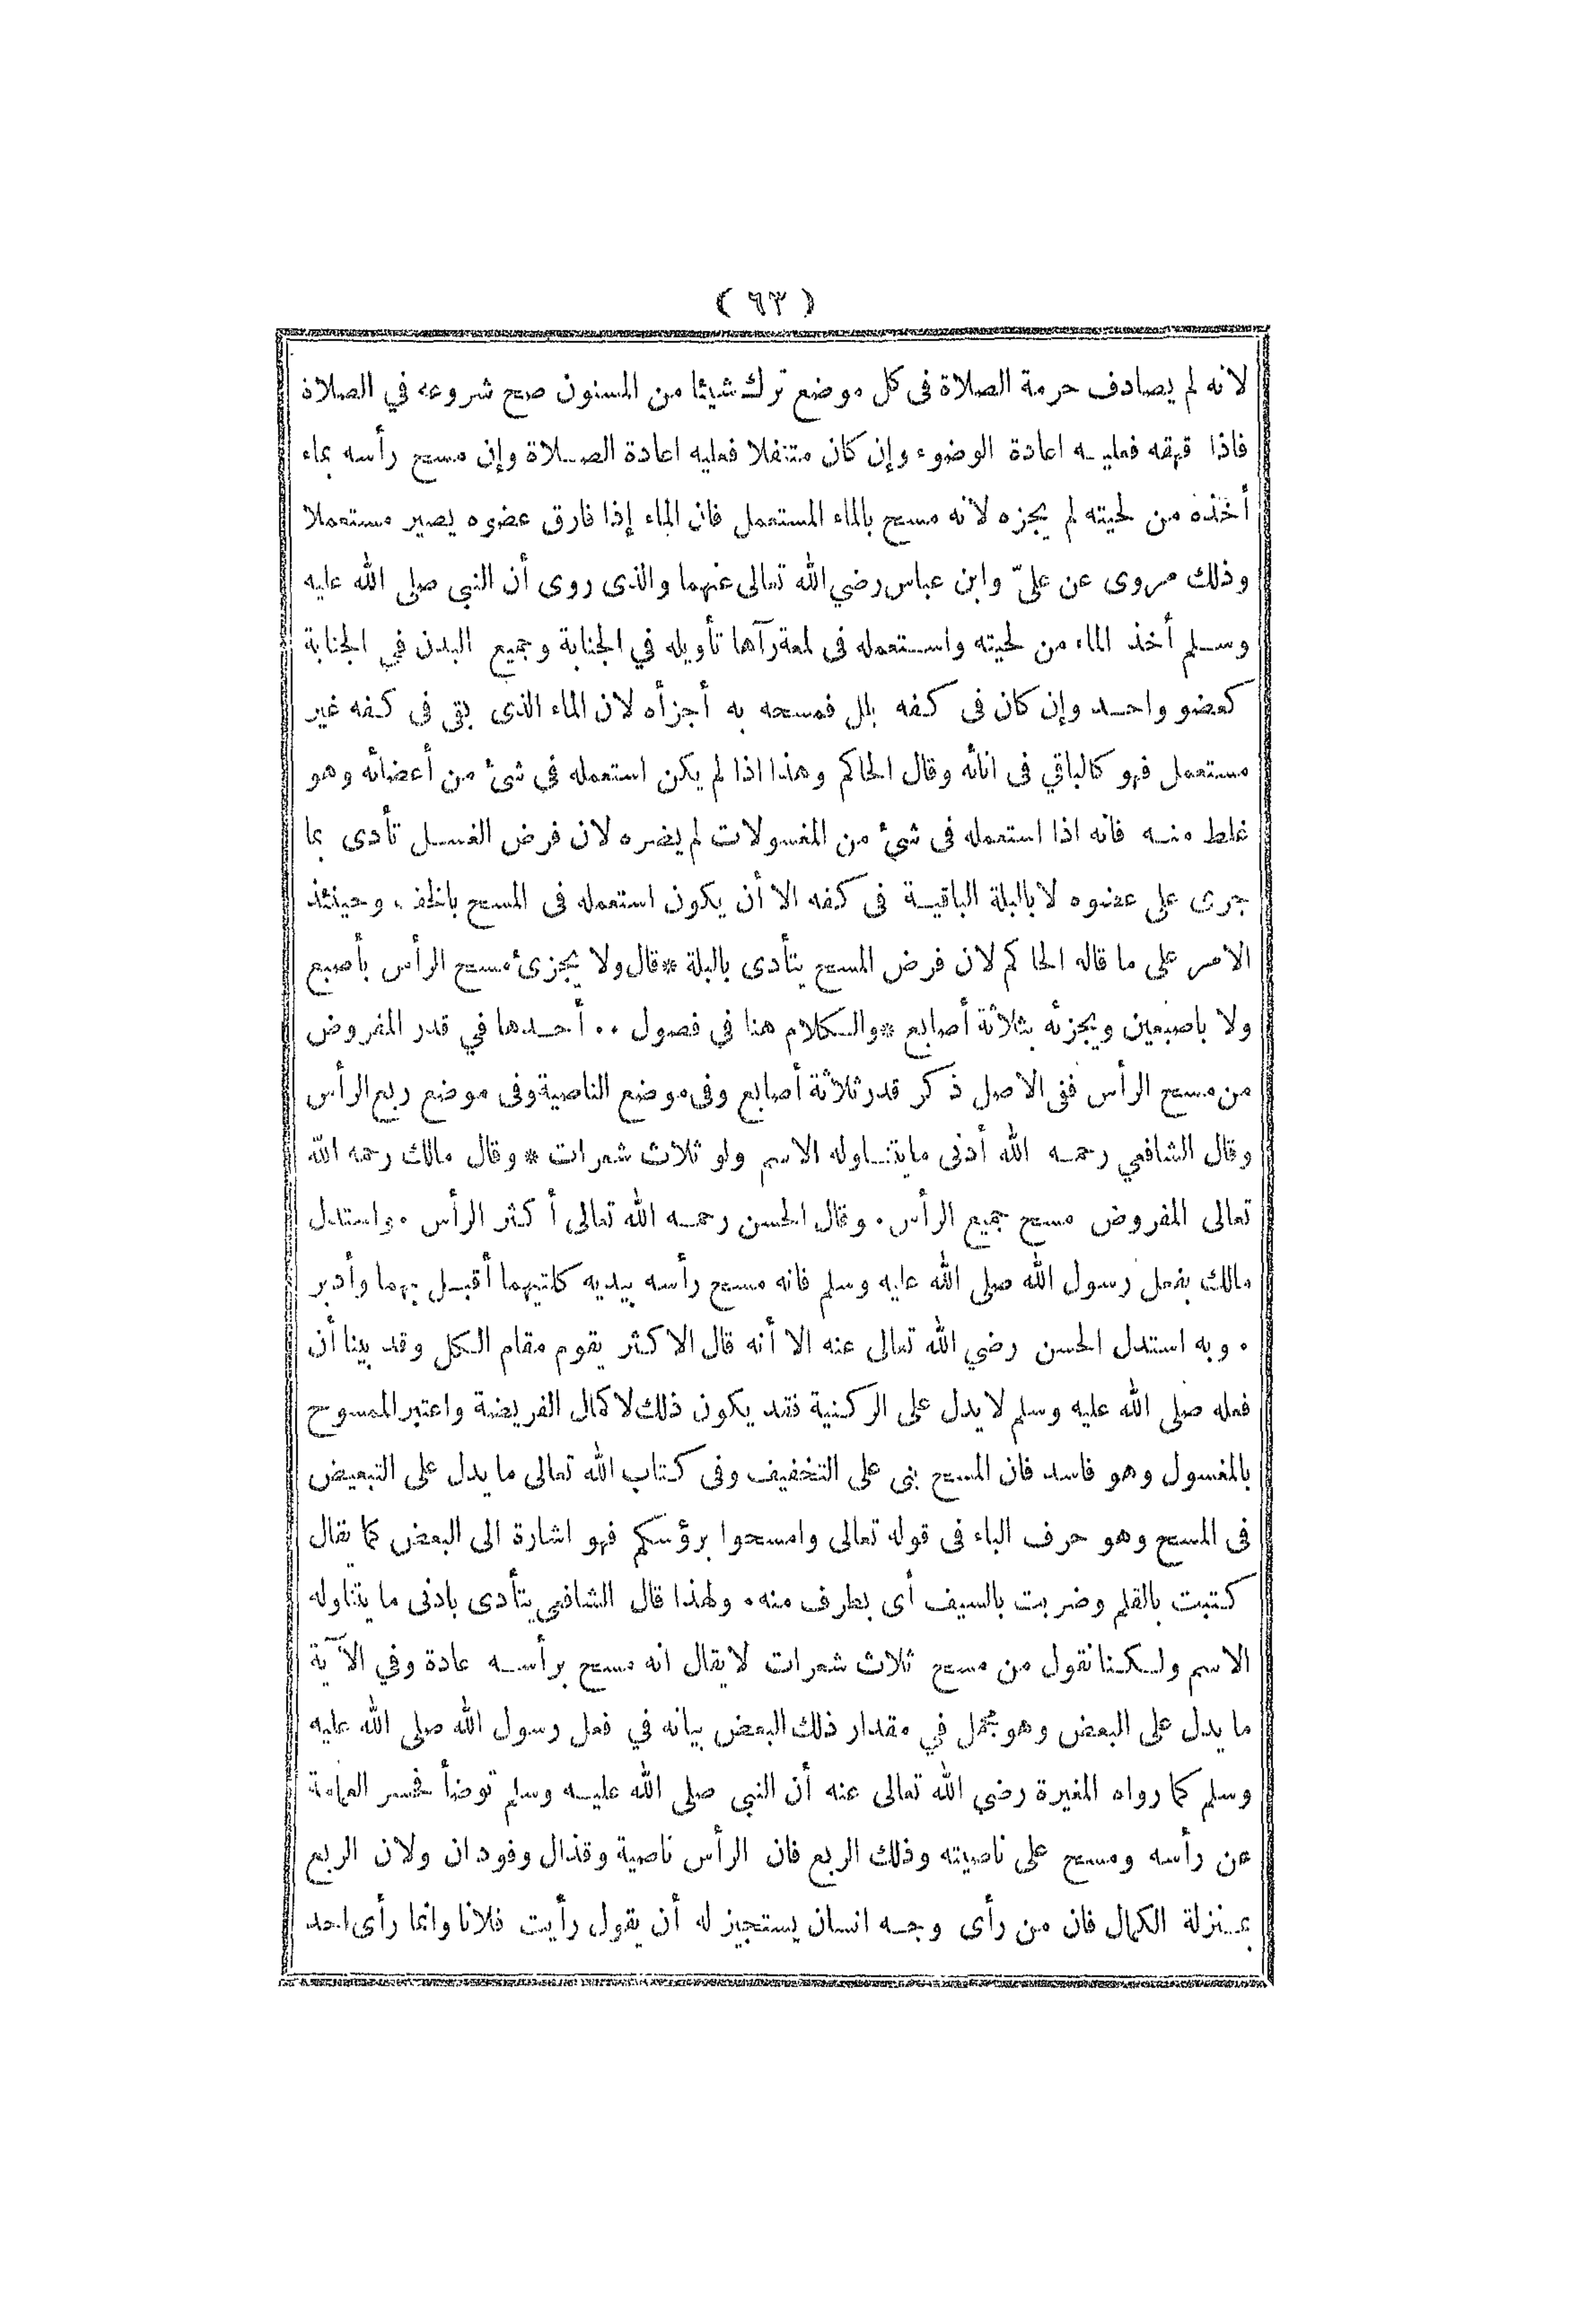 ( ٦٣ )
لانه لم يصادف حرمة الصلاة فى كل موضع ترك شيئا من المسنون صح شروعه في الصلاة
فاذا قهقه فعليه اعادة الوضوء وإن كان متنفلا فعليه اعادة الصلاة وإن مسح رأسه بماء
أخذه من لحيته لم يجزه لانه مسح بالماء المستعمل فان الماء إذا فارق عضوه يصير مستعملا
وذلك مروى عن علىّ وابن عباس رضي الله تعالى عنهما والذى روى أن النبي صلى الله عليه
وسلم أخذ الماء من لحيته واستعمله فى لمعة رآها تأويله في الجنابة وجميع البدن في الجنابة
كعضو واحد وإن كان فى كفه بلل فمسحه به أجزأه لان الماء الذى بقى فى كفه غير
مستعمل فهو كالباقي فى انائه وقال الحاكم وهذا اذا لم يكن استعمله فى شئ من أعضائه وهو
غلط منه فانه اذا استعمله فى شئ من المغسولات لم يضره لان فرض الغسل تأدى بما
جرى على عضوه لا بالبلة الباقية فى كفه الا أن يكون استعمله فى المسح بالخف. وحينئذ
الامر على ما قاله الحاكم لان فرض المسح يتأدى بالبلة *قال ولا يجزئ مسح الرأس بأصبع
ولا باصبعين ويجزئه بثلاثة أصابع *والكلام هنا فى فصول .. أحدها في قدر المفروض
من مسح الرأس ففى الاصل ذكر قدر ثلاثة أصابع وفى موضع الناصية وفى موضع ربع الرأس
وقال الشافعي رحمه الله أدنى مايتناوله الاسم ولو ثلاث شعرات * وقال مالك رحمه الله
تعالى المفروض مسح جميع الرأس. وقال الحسن رحمه الله تعالى أكثر الرأس. واستدل
مالك بفعل رسول الله صلى الله عليه وسلم فانه مسح رأسه بيديه كلتيهما أقبل بهما وأدبر
. وبه استدل الحسن رضي الله تعالى عنه الا أنه قال الاكثر يقوم مقام الكل وقد بينا أن
فعله صلى الله عليه وسلم لا يدل على الركنية فقد يكون ذلك لاكمال الفريضة واعتبر الممسوح
بالمغسول وهو فاسد فان المسح بنى على التخفيف وفى كتاب الله تعالى ما يدل على التبعيض
فى المسح وهو حرف الباء فى قوله تعالى وامسحوا برؤسكم فهو اشارة الى البعض كما يقال
كتبت بالقلم وضربت بالسيف أى بطرف منه. ولهذا قال الشافعى يتأدى بادنى ما يتناوله
الاسم ولكنا نقول من مسح ثلاث شعرات لا يقال انه مسح برأسه عادة وفي الآية
ما يدل على البعض وهو مجمل في مقدار ذلك البعض بيانه في فعل رسول الله صلى الله عليه
وسلم كما رواه المغيرة رضي الله تعالى عنه أن النبي صلى الله عليه وسلم توضأ فحسر العمامة
عن رأسه ومسح على ناصيته وذلك الربع فان الرأس ناصية وقذال وفودان ولان الربع
بمنزلة الكمال فان من رأى وجه انسان يستجيز له أن يقول رأيت فلانا وانما رأى احد